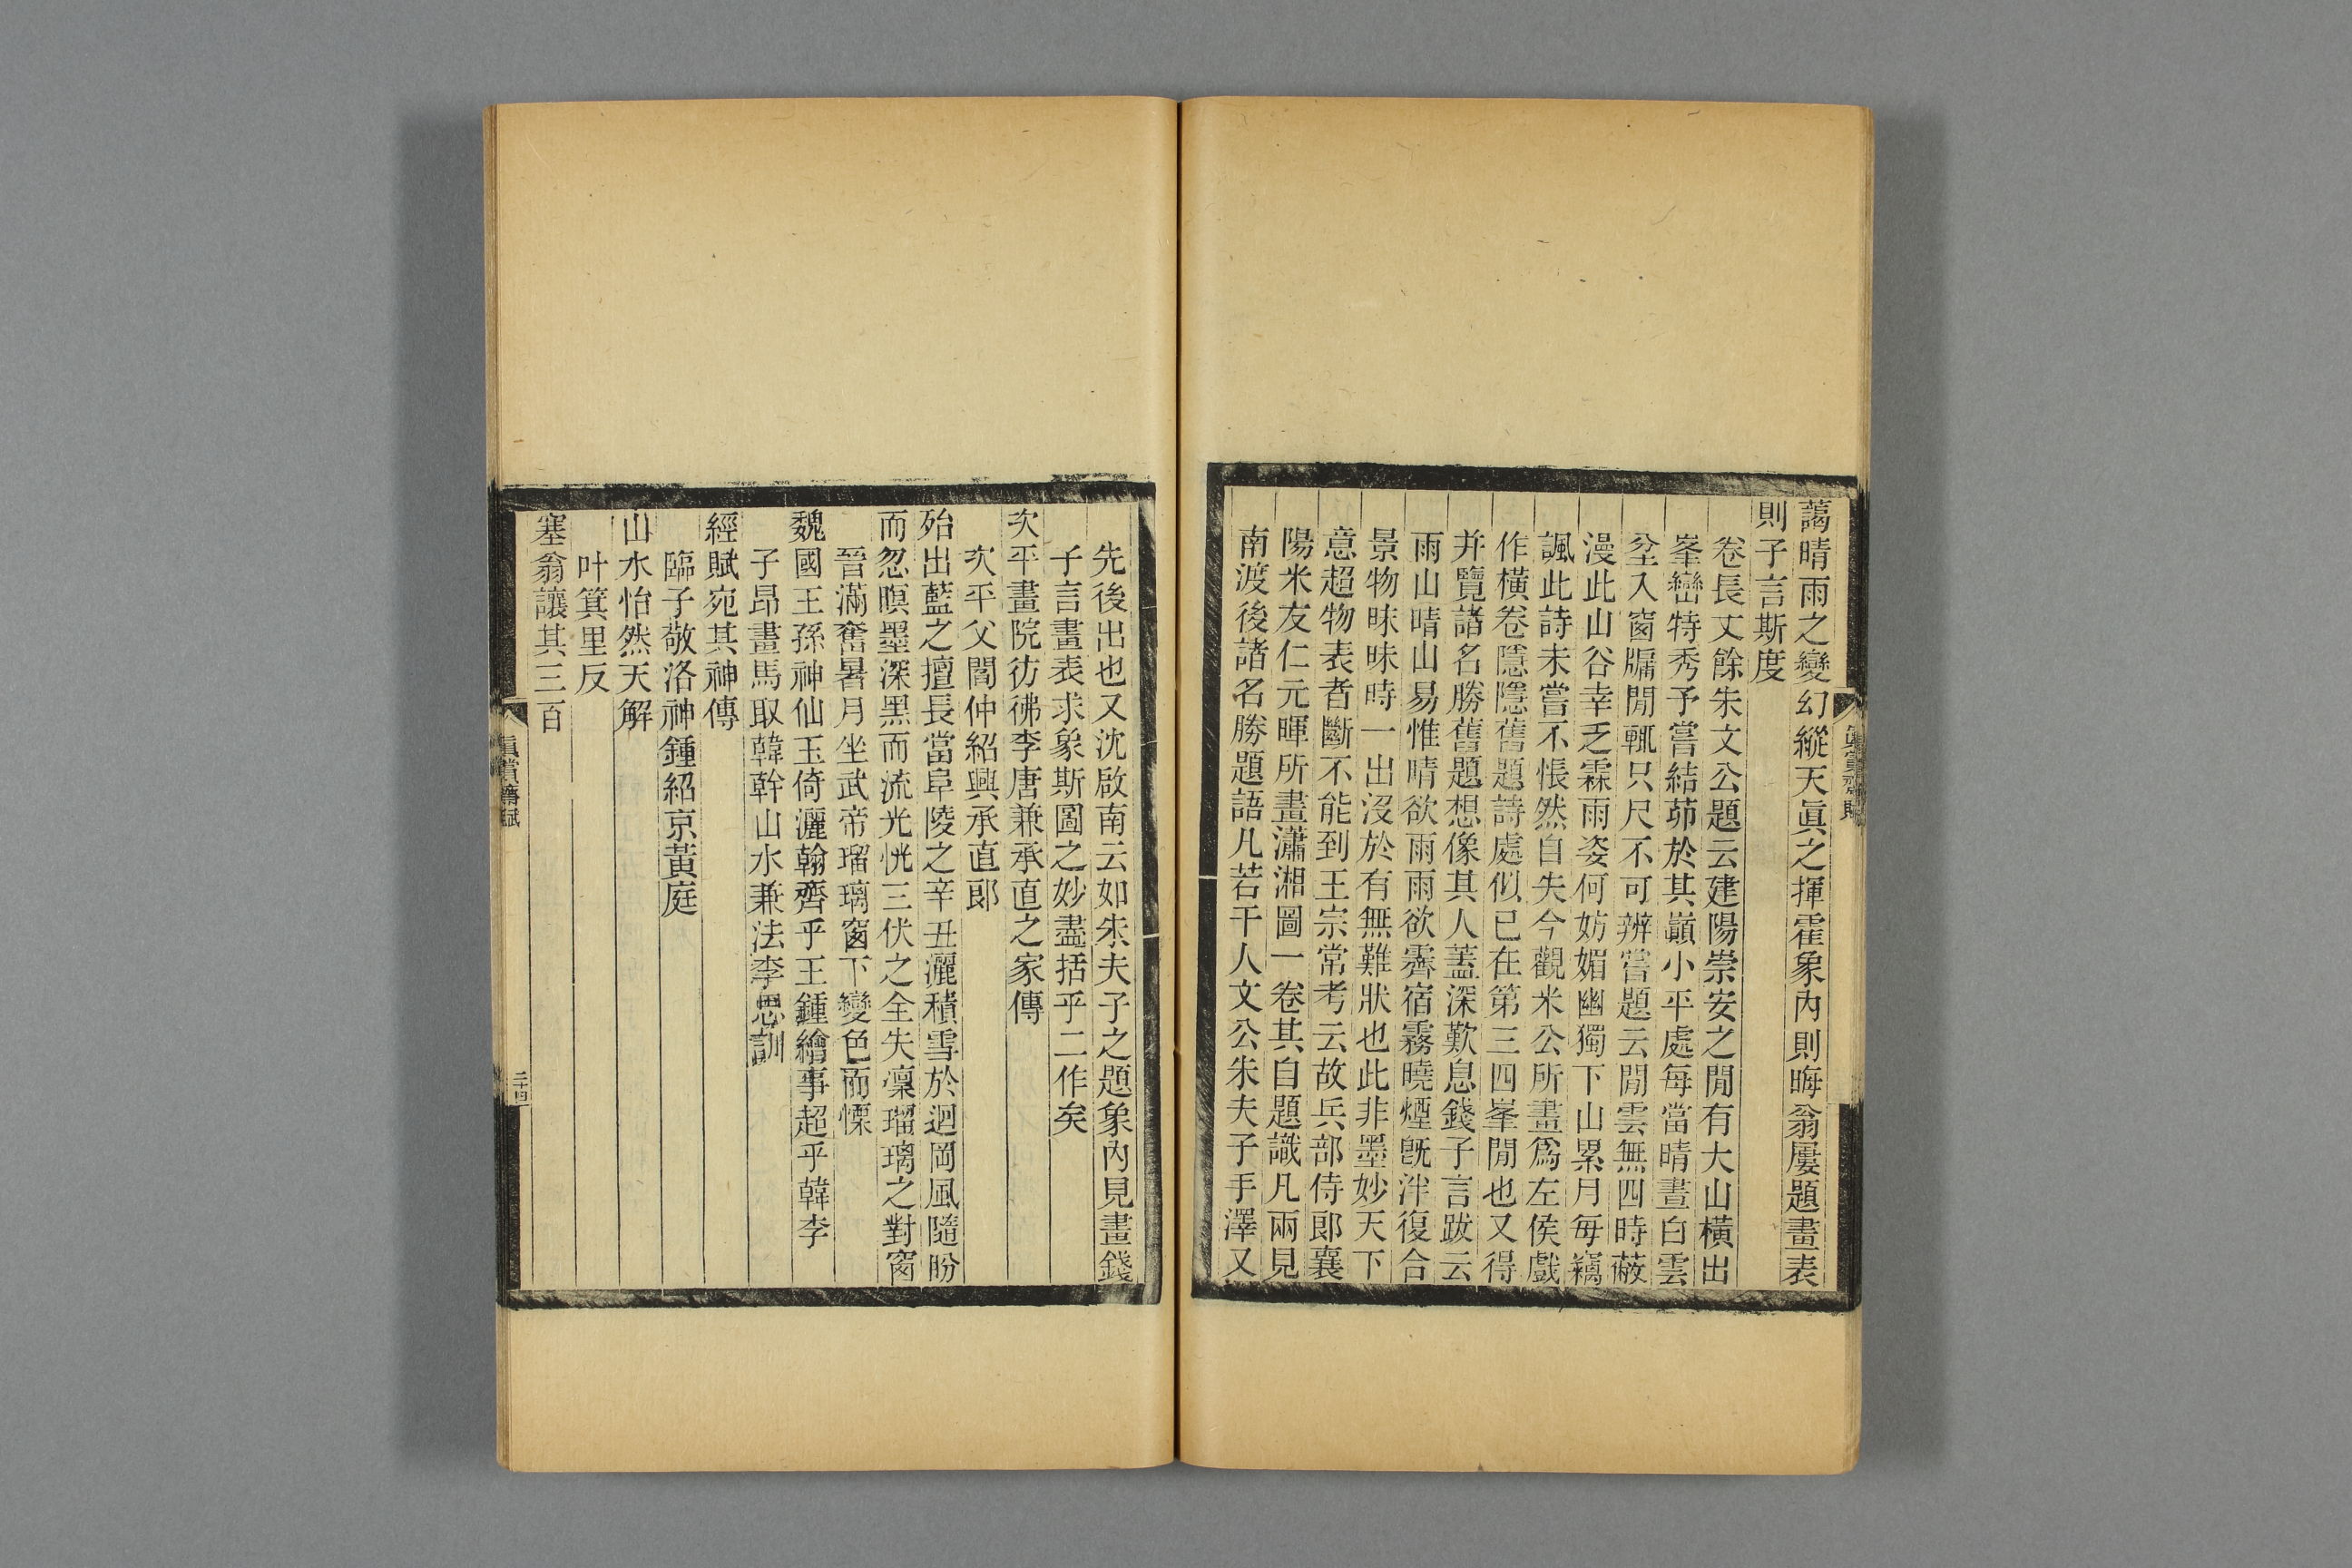 藹晴雨之變幻縱天眞之揮霍象內則晦翁屢題畫表
則子言斯度
卷長丈餘朱文公題云建陽崇安之閒有大山橫出
峯巒特秀予嘗結茆於其巓小平處每當晴晝白雲
坌入窗牖閒輒只尺不可辨嘗題云閒雲無四時蔽
漫此山谷幸乏霖雨姿何妨媚幽獨下山累月每竊
諷此詩未嘗不悵然自失今觀米公所畫爲左侯戲
作橫卷隱隱舊題詩處似已在第三四峯閒也又得
并覽諸名勝舊題想像其人蓋深歎息錢子言跋云
雨山晴山易惟晴欲雨雨欲霽宿霧曉煙旣泮復合
景物昧昧時一出沒於有無難狀也此非墨妙天下
意超物表者斷不能到王宗常考云故兵部侍郞襄
陽米友仁元暉所畫瀟湘圖一卷其自題識凡兩見
南渡後諸名勝題語凡若干人文公朱夫子手澤又
先後出也又沈啟南云如朱夫子之題象內見畫錢
子言畫表求象斯圖之妙盡括乎二作矣
次平畫院彷彿李唐兼承直之家傳
次平父閻仲紹興承直郞
殆出藍之擅長當阜陵之辛丑灑積雪於迴岡風隨盼
而忽暝墨深黑而流光恍三伏之全失凜瑠璃之對窗
晉滿奮暑月坐武帝瑠璃窗下變色而慄
魏國王孫神仙玉倚灑翰齊乎王鍾繪事超乎韓李
子昂畫馬取韓幹山水兼法李思訓
經賦宛其神傳
臨子敬洛神鍾紹京黃庭
山水怡然天解
叶箕里反
塞翁讓其三百
眞賞齋賦
二十四